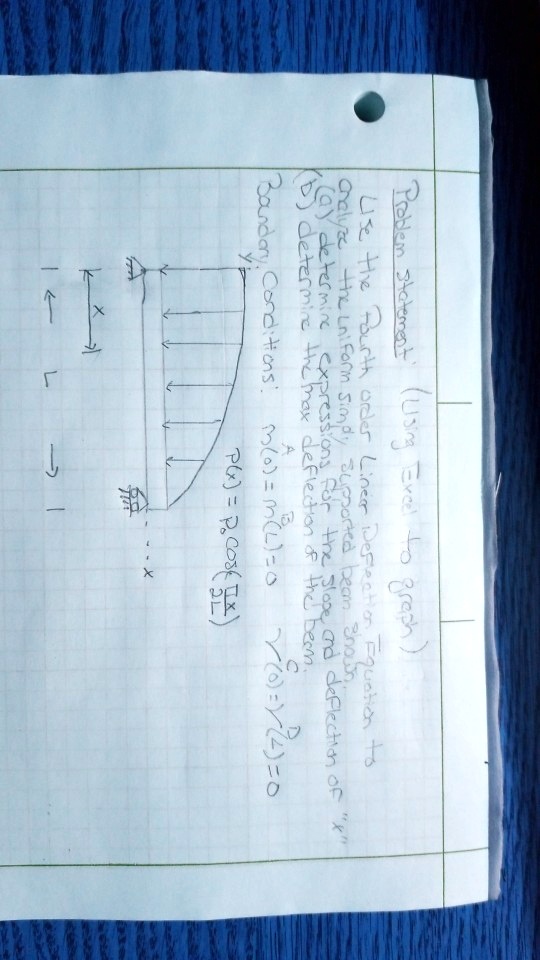 Problem Statement (Using Excel to graph)
Use the Fourth order Linear Deflection Equation to
analyze the uniform simply supported beam shown.
(a) determine expressions for the slope and deflection of "x"
(b) determine the max deflection of the beam.
A B C D
Boundary Conditions: m(0)=m(L)=0 V(0)=V(L)=0
y
P(x) = P₀ cos(πx/2L)
x
x
L